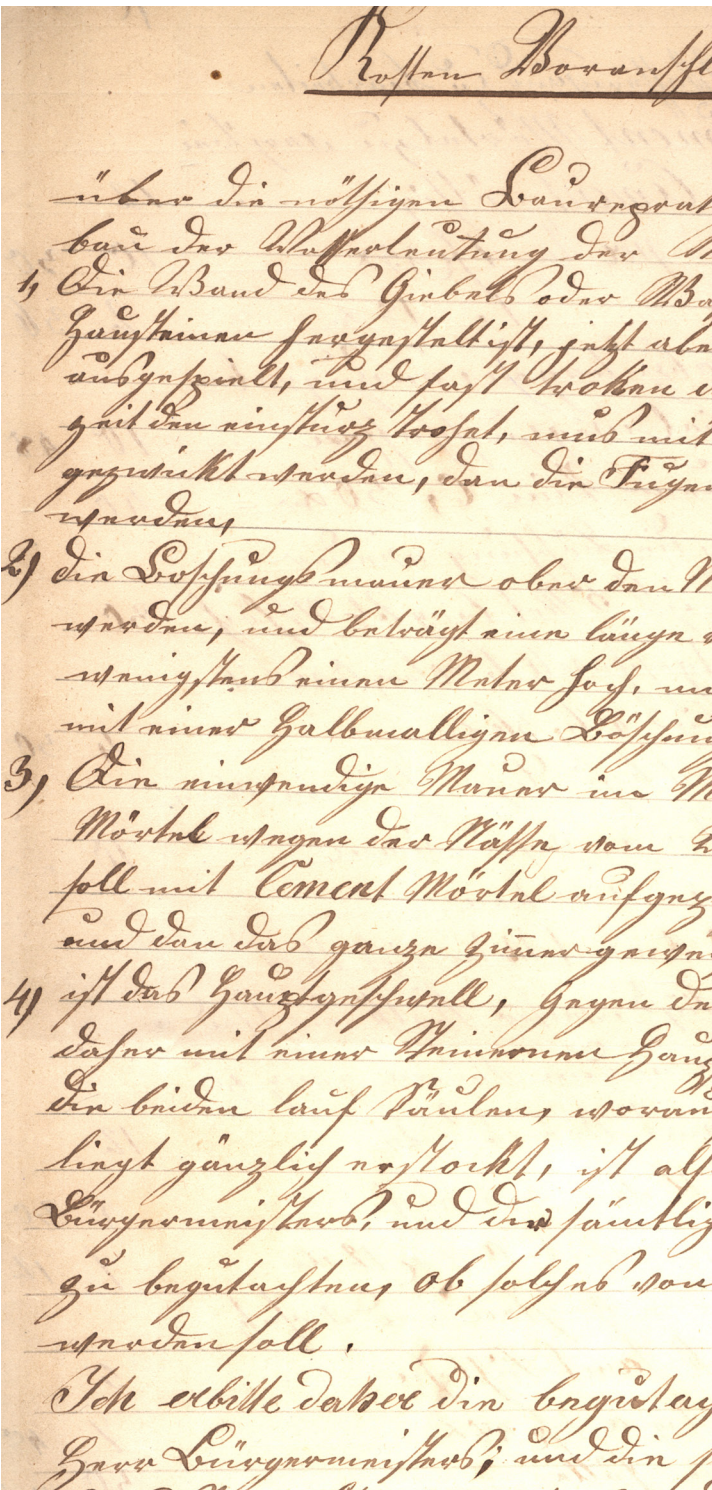 Kosten Voranschl
über die nöthigen Baureprat
bau der Wasserleutung der
1, Die Wand des Giebels oder Wa
Hausteinen hergestelt ist, jetzt abe
ausgespielt, und fast troken
zeit den einsturz trohet, mus mit
gezwickt werden, dan die Fugen
werden,
2) die Boschungsmauer ober den
werden, und beträgt eine länge
wenigstens einen Meter hoch, un
mit einer Halbmalligen Böschun
3, Die einwendige Mauer im M
Mörtel wegen der Nässe, vom
soll mit Cement Mörtel aufgez
und dan das ganze Zimer gewei
4) ist das Hauptgeschwell, gegen de
daher mit einer Steinernen Haup
die beiden lauf Säulen, worau
liegt gänzlich erstockt, ist als
Bürgermeisters, und der sämtlig
zu begutachten, ob solches von
werden soll.
Ich erbitte daher die begutag
Herr Bürgermeisters; und die s